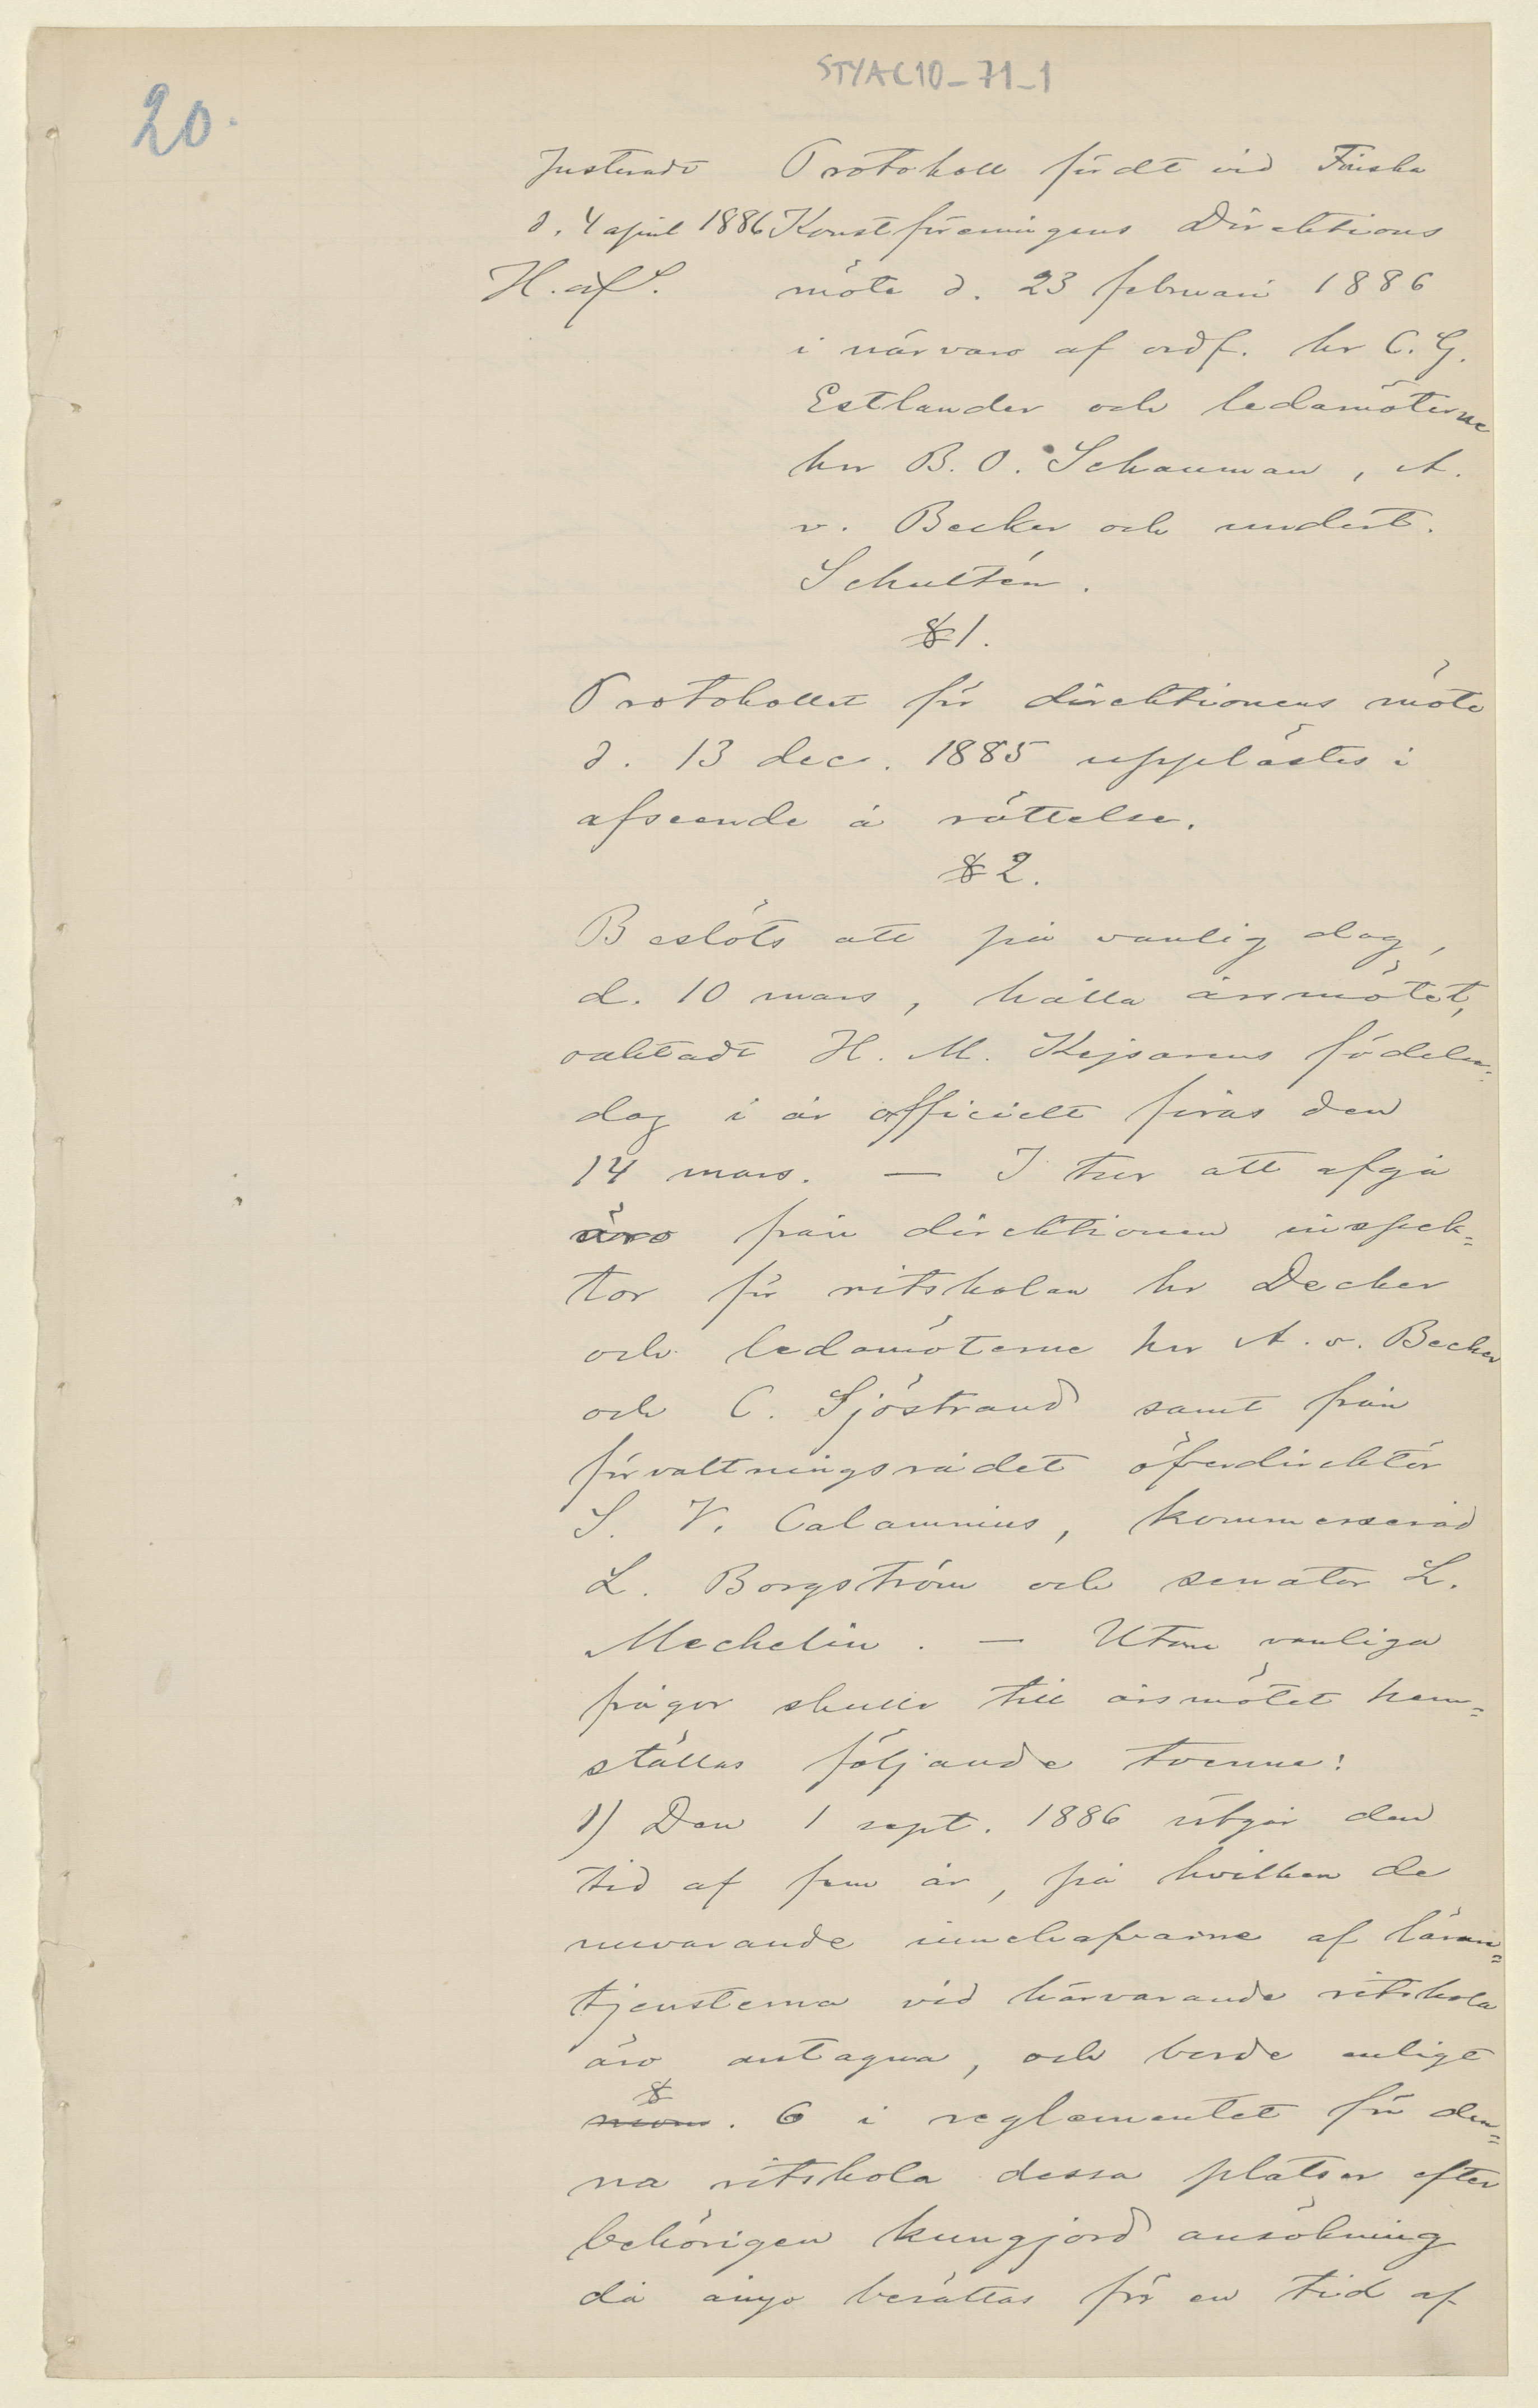 STYAC10_71_1
20.
Justeradt
d. 4 april 1886
H. af S.
Protokoll fördt vid Finska
Konstföreningens Direktions
möte d. 23 februari 1886
i närvaro af ordf. hr C. G.
Estlander och ledamöterne
hrr B. O. Schauman, A.
v. Becker och undert.
Schultén.
§ 1.
Protokollet för direktionens möte
d. 13 dec. 1885 upplästes i
afseende å rättelse.
§ 2.
Beslöts att på vanlig dag,
d. 10 mars, hålla årsmötet,
oaktadt H. M. Kejsarens födelse-
dag i år officielt firas den
14 mars. — I tur att afgå
äro från direktionen inspek-
tor för ritskolan hr Decker
och ledamöterne hrr A. v. Becker
och C. Sjöstrand samt från
förvaltningsrådet öfverdirektör
S. V. Calamnius, kommerseråd
L. Borgström och senator L.
Mechelin. — Utom vanliga
frågor skulle till årsmötet hem-
ställas följande tvenne:
1) Den 1 sept. 1886 utgår den
tid af fem år, på hvilken de
nuvarande innehafvarne af lärare-
tjensterna vid härvarande ritskola
äro antagna, och borde enligt
§
mom. 6 i reglementet för den-
na ritskola dessa platser efter
behörigen kungjord ansökning
då ånyo besättas för en tid af